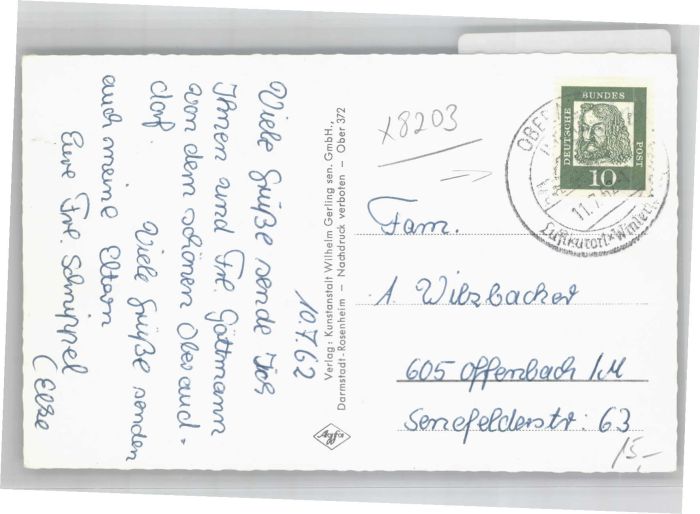 10.7.62
Viele Grüße sende Ich
Ihnen und Frl. Göttmann
von dem schönen Oberaud-
dorf.
Viele Grüße senden
auch meine Eltern
Eure Frl. Schnippel
(Else
Verlag: Kunstanstalt Wilhelm Gerling sen. GmbH.,
Darmstadt-Rosenheim – Nachdruck verboten – Ober 372
Agfa
x8203
DEUTSCHE BUNDES POST
10
11.7.62
Luftkurort
Fam.
A. Wilzbacher
605 Offenbach/M
Senefelderstr: 63
15,-